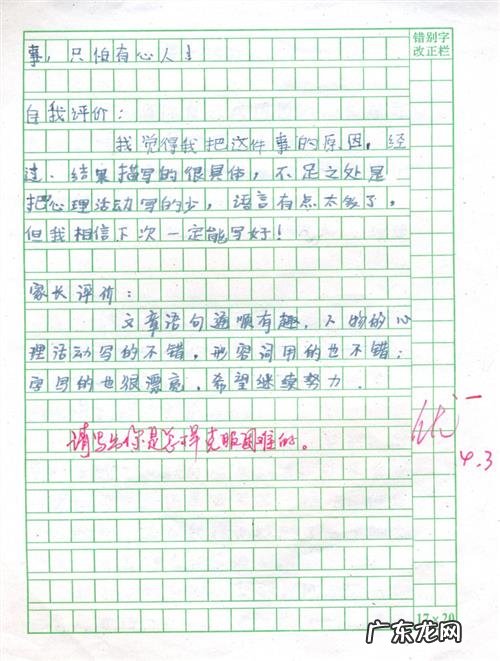 错别字
改正栏
事，只怕有心人！
自我评价：
我觉得我把这件事的原因，经
过、结果描写的很具体，不足之处是
把心理活动写的少，语言有点太多了，
但我相信下次一定能写好！
家长评价：
文章语句通顺有趣，人物的心
理活动写的不错，形容词用的也不错；
字写的也很漂亮，希望继续努力.
请写出你是怎样克服困难的。
优-
4.3
17×20
广东龙网